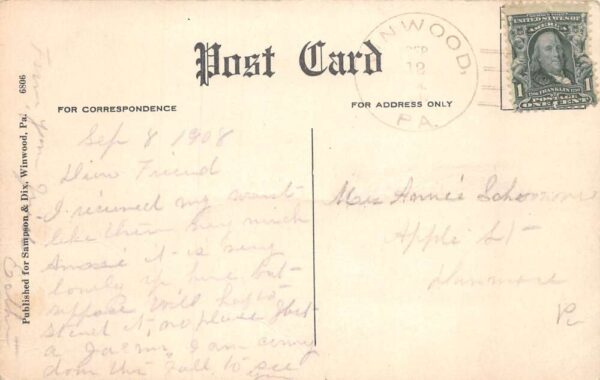 Post Card
WINWOOD,
SEP
12
PA.
UNITED STATES OF AMERICA
1 FRANKLIN 1
POSTAGE
ONE CENT
FOR CORRESPONDENCE
FOR ADDRESS ONLY
6806
Published for Sampson & Dix, Winwood, Pa.
Sep 8 1908
Dear Friend
I received my
like them very much
it is very
lonely up here but
suppose will haft to
stand it, no place Just
a farm, I am coming
down this Fall to see
you
Miss Annie
Apple St
Dunmore
Pa